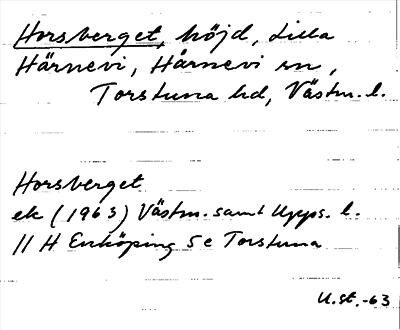 Horsberget, höjd, Lilla
Härnevi, Härnevi sn,
Torstuna hd, Västm. l.
Horsberget
ek (1963) Västm. samt Upps. l.
11 H Enköping 5 e Torstuna
U.st.-63